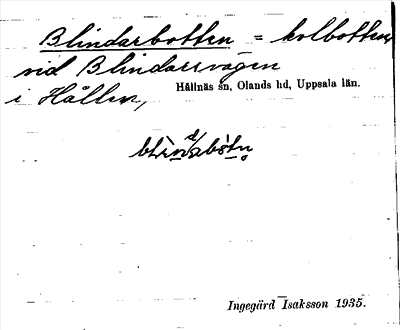 Blindarbotten = kolbotten
vid Blindarsvägen
i Hållen,
Hållnäs sn, Olands hd, Uppsala län.
Ingegärd Isaksson 1935.